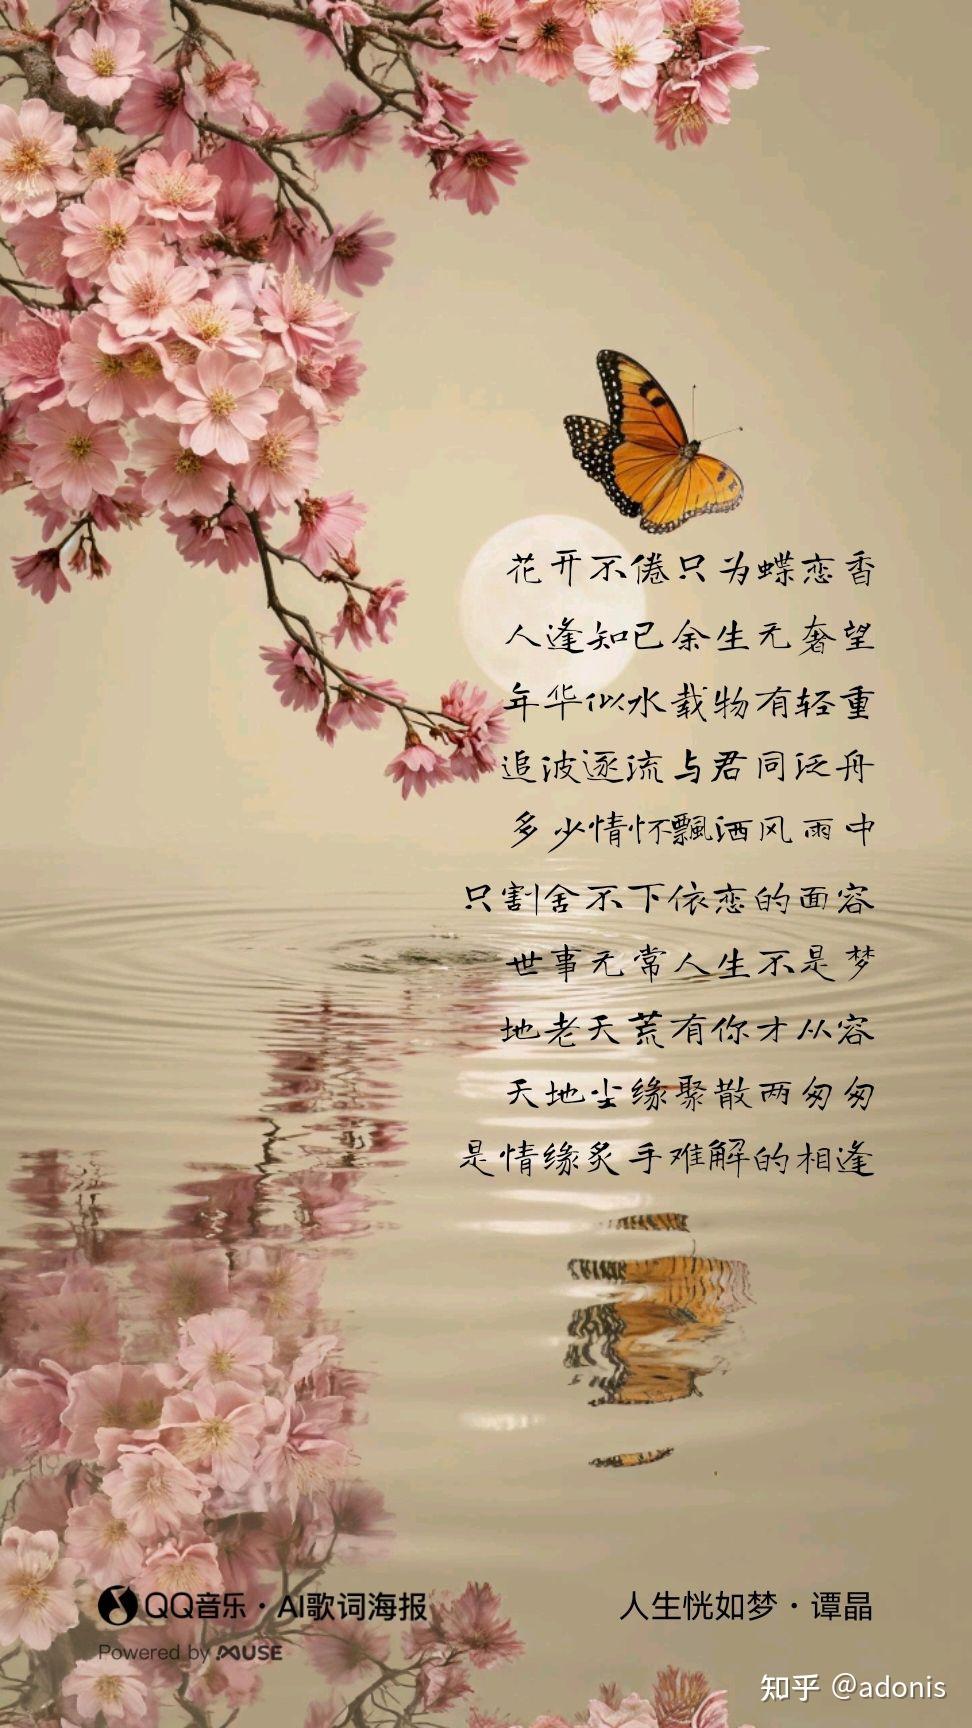 花开不倦只为蝶恋香
人逢知已余生无奢望
年华似水载物有轻重
追波逐流与君同泛舟
多少情怀飘洒风雨中
只割舍不下依恋的面容
世事无常人生不是梦
地老天荒有你才从容
天地尘缘聚散两匆匆
是情缘炙手难解的相逢
QQ音乐·AI歌词海报
Powered by MUSE
人生恍如梦·谭晶
知乎 @adonis